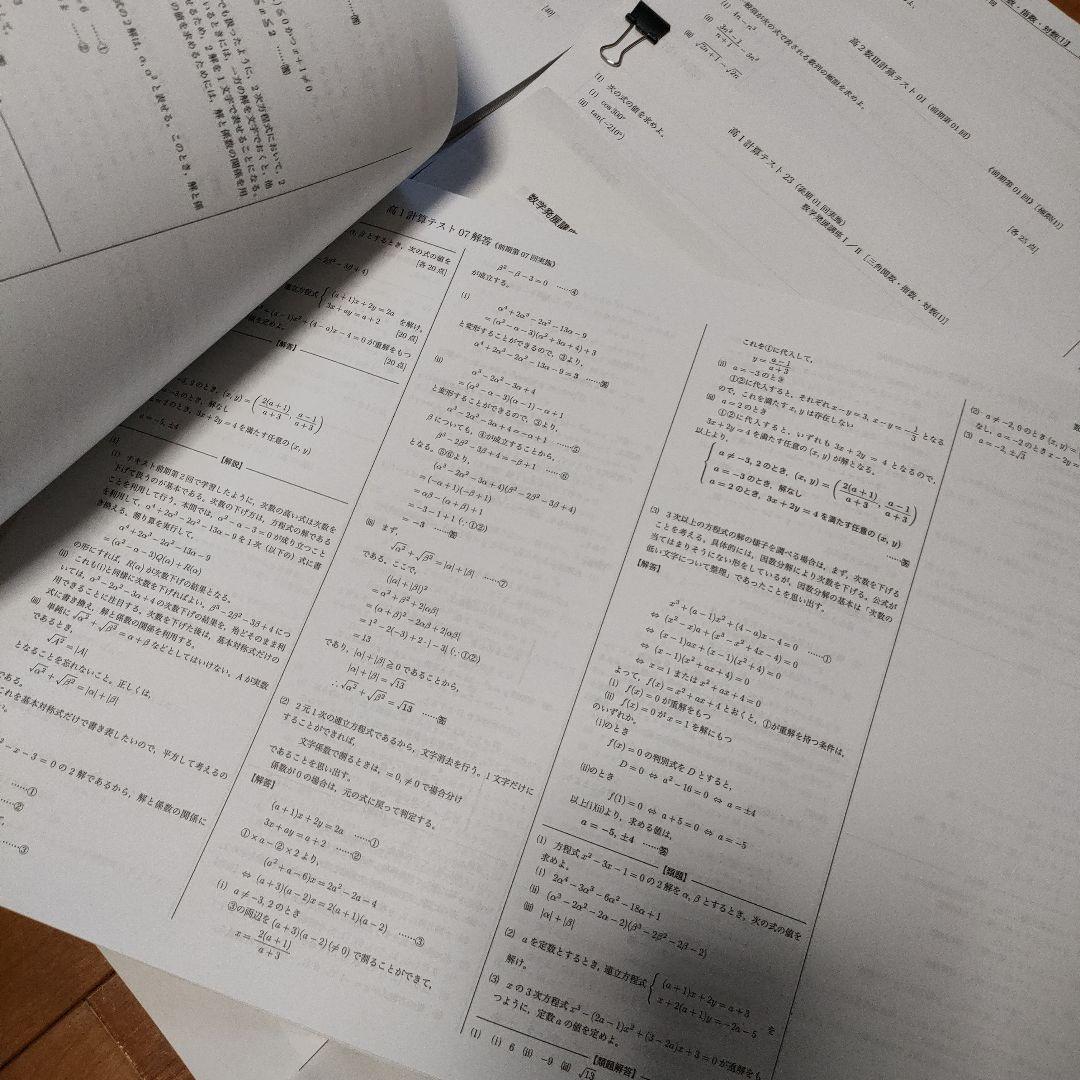 高1計算テスト07解答《前期第07回実施》
β とするとき，次の式の値を
[各20点]
(a+1)x+2y=2a
3x+ay=a+2
を解け．
[20点]
+(a−1)x²+(4−a)x−4=0が重解をもつ
[20点]
【解答】
3x+2y=4を満たす任意の(x, y)
a=−5, ±4
【解説】
(1)
(i) テキスト前期第2回で学習したように，次数の高い式は次数を
下げて扱うのが基本である．次数の下げ方は，方程式の解である
ことを利用して行う．本問では，α²−α−3=0が成り立つこと
を利用して，α⁴+2α³−2α²−13α−9を1次（以下の）式に書
き換える．割り算を実行して，
α⁴+2α³−2α²−13α−9
=(α²−α−3)Q(α)+R(α)
の形にすれば，R(α)が次数下げの結果となる．
(ii) これも(i)と同様に次数を下げればよい．β³−2β²−3β+4につ
いては，α³−2α²−3α+4の次数下げの結果を，殆どそのまま利
用できることに注目する．次数を下げた後は，基本対称式だけの
式に書き換え，解と係数の関係を利用する．
(iii) 単純に√α²+√β²=α+βなどとしてはいけない．Aが実数
であるとき，
√A²=|A|
となることを忘れないこと．正しくは，
√α²+√β²=|α|+|β|
である．
これを基本対称式だけで書き表したいので，平方して考えるの
−x−3=0の2解であるから，解と係数の関係に
……①
……②
……③
β²−β−3=0 ……④
が成立する．
(i)
α⁴+2α³−2α²−13α−9
=(α²−α−3)(α²+3α+4)+3
と変形することができるので，③より，
α⁴+2α³−2α²−13α−9=3 ……答
(ii)
α³−2α²−3α+4
=(α²−α−3)(α−1)−α+1
と変形することができるので，③より，
α³−2α²−3α+4=−α+1 ……⑤
βについても，④が成立することから，
β³−2β²−3β+4=−β+1 ……⑥
となる．⑤⑥より，
(α³−2α²−3α+4)(β³−2β²−3β+4)
=(−α+1)(−β+1)
=αβ−(α+β)+1
=−3−1+1 (∵①②)
=−3 ……答
(iii) まず，
√α²+√β²=|α|+|β| ……⑦
である．ここで，
(|α|+|β|)²
=α²+β²+2|αβ|
=(α+β)²−2αβ+2|αβ|
=1²−2(−3)+2·|−3| (∵①②)
=13
であり，|α|+|β|≧0であることから，
|α|+|β|=√13
∴√α²+√β²=√13 ……答
(2) 2元1次の連立方程式であるから，文字消去を行う．1文字だけに
することができれば，
文字係数で割るときは，=0, ≠0で場合分け
であることを思い出す．
係数が0の場合は，元の式に戻って判定する．
【解答】
(a+1)x+2y=2a ……①
3x+ay=a+2 ……②
①×a−②×2より，
(a²+a−6)x=2a²−2a−4
⇔(a+3)(a−2)x=2(a+1)(a−2) ……③
(i) a≠−3, 2のとき
③の両辺を(a+3)(a−2)(≠0)で割ることができて，
x=2(a+1)/(a+3)
これを①に代入して，
y=(a−1)/(a+3)
(ii) a=−3のとき
①②に代入すると，それぞれx−y=3, x−y=−1/3となる
ので，これを満たすx, yは存在しない
(iii) a=2のとき
①②に代入すると，いずれも3x+2y=4となるので，
3x+2y=4を満たす任意の(x, y)が解となる．
以上より，
a≠−3, 2のとき，(x, y)=(2(a+1)/(a+3), (a−1)/(a+3))
a=−3のとき，解なし
a=2のとき，3x+2y=4を満たす任意の(x, y)
……答
(3) 3次以上の方程式の解の様子を調べる場合は，まず，次数を下げる
ことを考える．具体的には，因数分解により次数を下げる．公式が
当てはまりそうにない形をしているが，因数分解の基本は「次数の
低い文字について整理」であったことを思い出す．
【解答】
x³+(a−1)x²+(4−a)x−4=0 ……①
⇔(x²−x)a+(x³−x²+4x−4)=0
⇔(x−1)ax+(x−1)(x²+4)=0
⇔(x−1)(x²+ax+4)=0
⇔x=1またはx²+ax+4=0
よって，f(x)=x²+ax+4とおくと，①が重解を持つ条件は，
(i) f(x)=0が重解をもつ
(ii) f(x)=0がx=1を解にもつ
のいずれか．
(i)のとき
f(x)=0の判別式をDとすると，
D=0⇔a²−16=0⇔a=±4
(ii)のとき
f(1)=0⇔a+5=0⇔a=−5
以上(i)(ii)より，求める値は，
a=−5, ±4 ……答
【類題】
(1) 方程式x²−3x−1=0の2解をα, βとするとき，次の式の値を
求めよ．
(i) 2α⁴−3α³−6α²−18α+1
(ii) (α³−2α²−2α−2)(β³−2β²−2β−2)
(iii) |α|+|β|
(2) aを定数とするとき，連立方程式
(a+1)x+2y=a+3
x+2(a+1)y=−2a−5
を
解け．
(3) xの3次方程式x³−(2a−1)x²+(3−2a)x+3=0が重解をも
つように，定数aの値を定めよ．
【類題解答】
(1) (i) 6 (ii) −9 (iii) √13
(2) a≠−2, 0のとき(x, y)=
なし，a=−2のときx−2y=
(3) a=−2, ±√3
数学発展講座
高1計算テスト23《後期01回実施》
数学発展講座I／II［三角関数・指数・対数(1)］
(1) 次の式の値を求めよ．
(i) cos300°
(ii) tan(−210°)
高2数III計算テスト01《前期第01回》
《前期第01回》［極限(1)］
[各25点]
一般項が次の式で表される数列の極限を求めよ．
(i) 4n−n³
(iii) √2n+1−√2n
でも扱ったように，2次方程式において，2
いるときには，一方の解を文字でおくと，他
せるため，2解を1文字で表せることになる．
の値を求めるためには，解と係数の関係を用
式の2解は，α, α²と表せる．このとき，解と係
≦0かつx+1≠0
≦x≦2 ……答